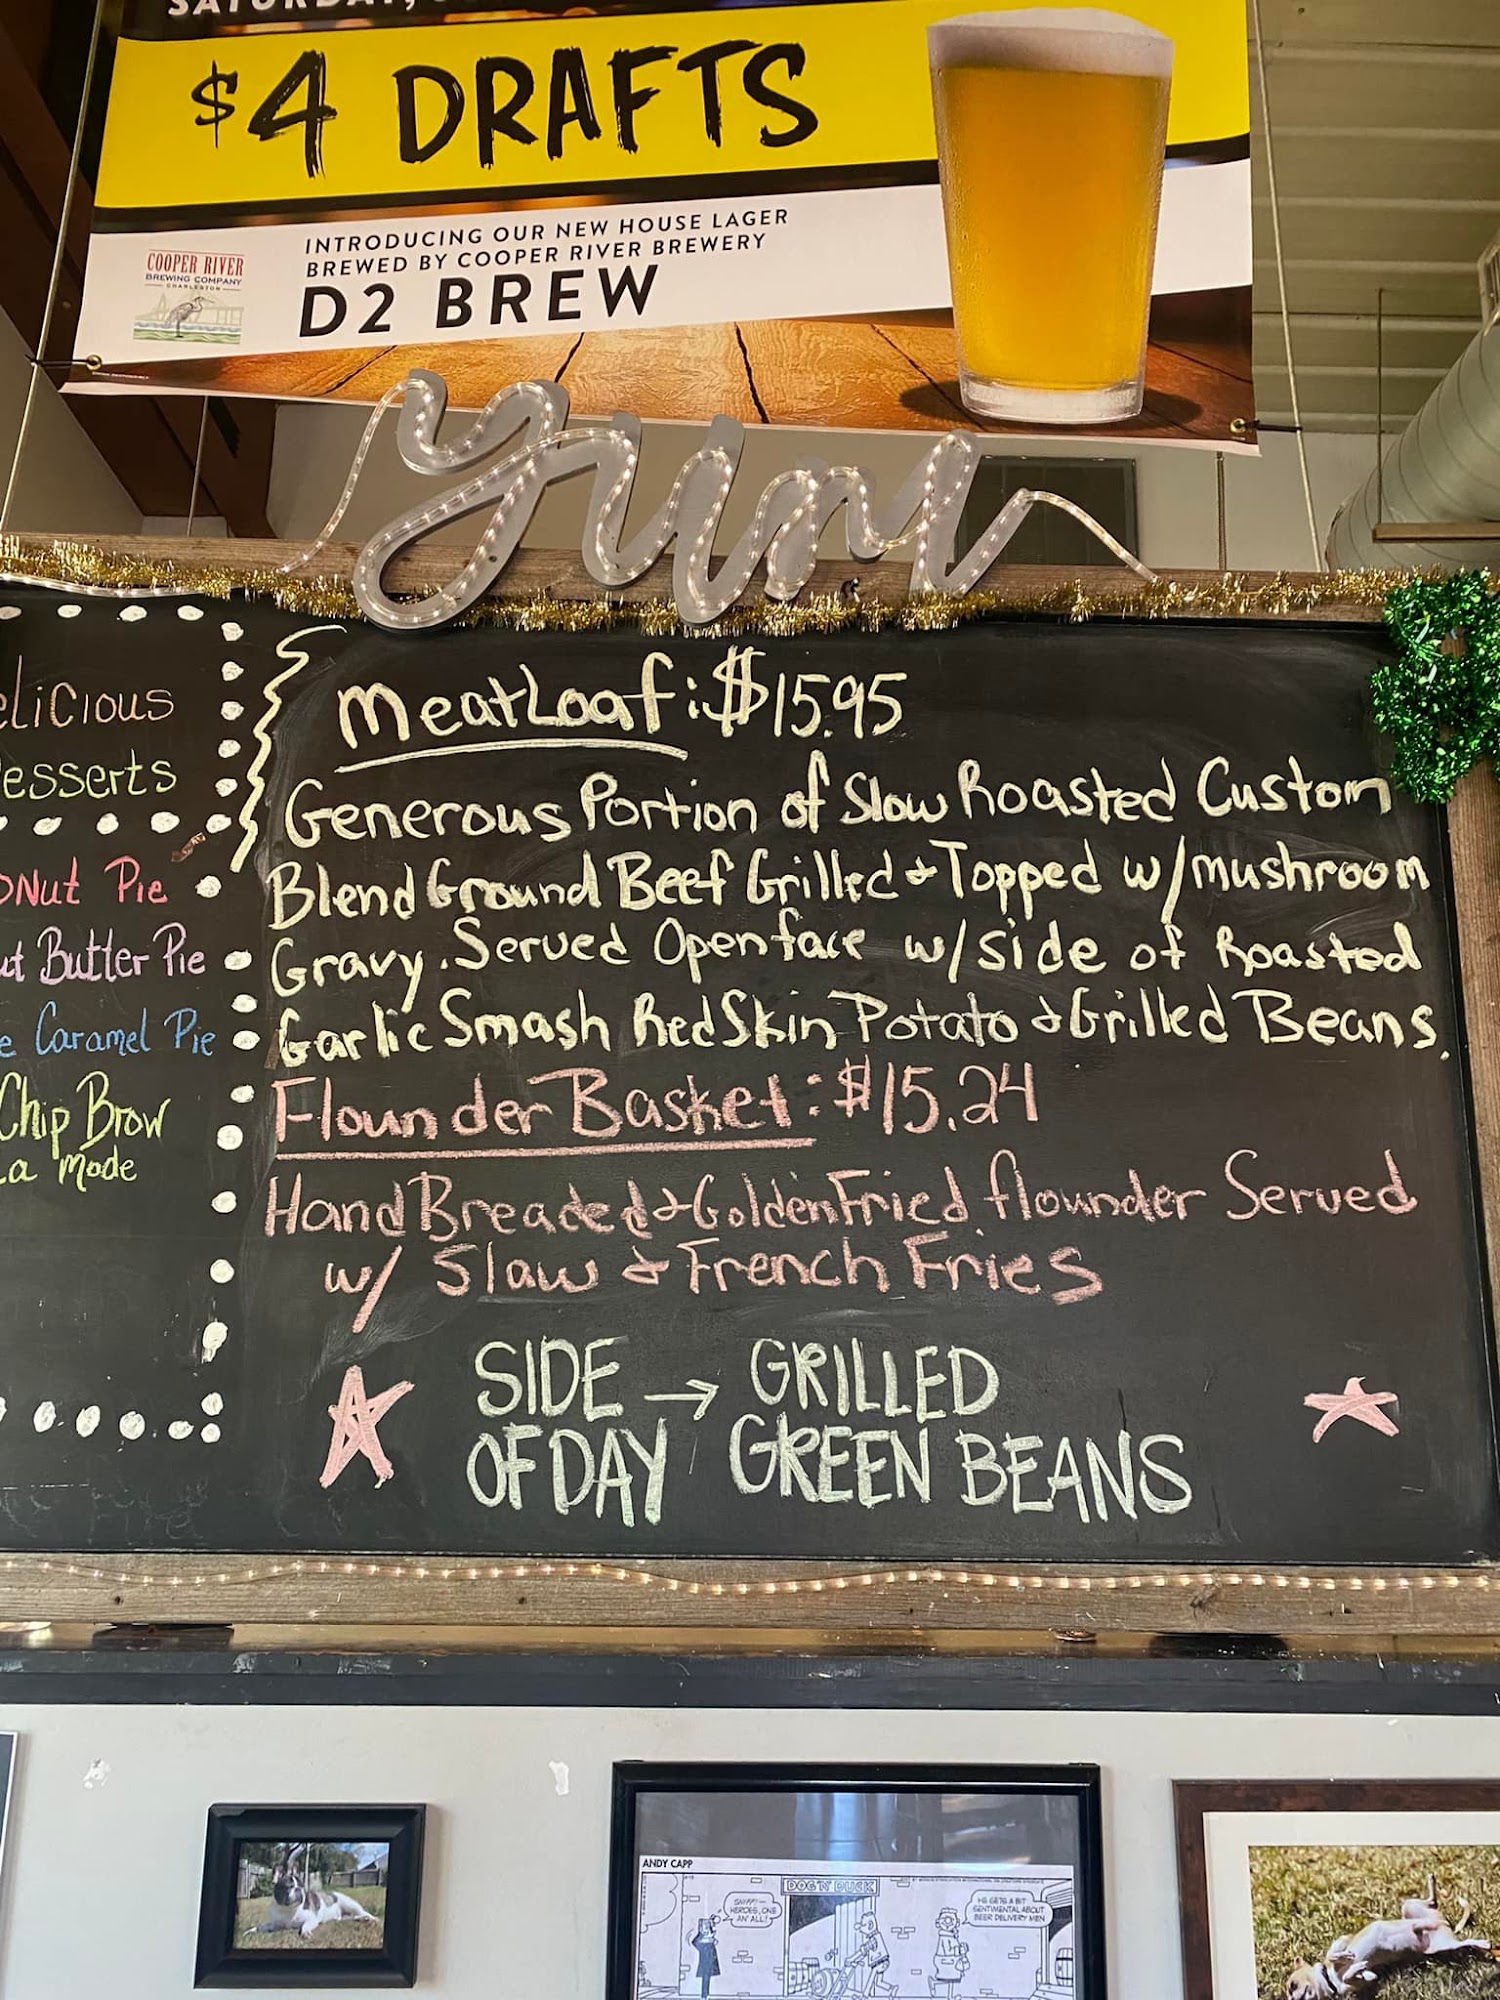 SATURDAY,
$4 DRAFTS
COOPER RIVER
BREWING COMPANY
CHARLESTON
INTRODUCING OUR NEW HOUSE LAGER
BREWED BY COOPER RIVER BREWERY
D2 BREW
yum
elicious
esserts
oNut Pie
ut Butter Pie
e Caramel Pie
Chip Brow
La mode
MeatLoaf: $15.95
Generous Portion of Slow Roasted Custom
Blend Ground Beef Grilled & Topped w/mushroom
Gravy. Served Openface w/side of Roasted
Garlic Smash RedSkin Potato & Grilled Beans.
Flounder Basket: $15.24
Hand Breaded & Golden Fried flounder Served
w/ Slaw & French Fries
SIDE → GRILLED
OF DAY GREEN BEANS
ANDY CAPP
DOG 'N' DUCK
HEROES, ONE
AN' ALL!
HE GETS A BIT
SENTIMENTAL ABOUT
BEER DELIVERY MEN